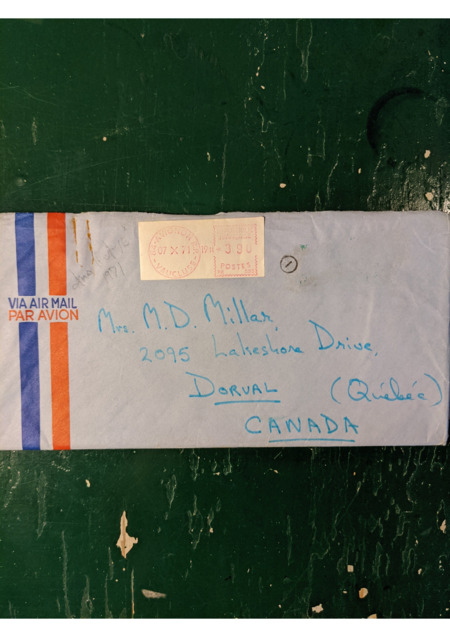 VIA AIR MAIL
PAR AVION
07 X 71
VAUCLUSE
POSTES
Mrs. M.D. Millar,
2095 Lakeshore Drive,
DORVAL (Québéc)
CANADA